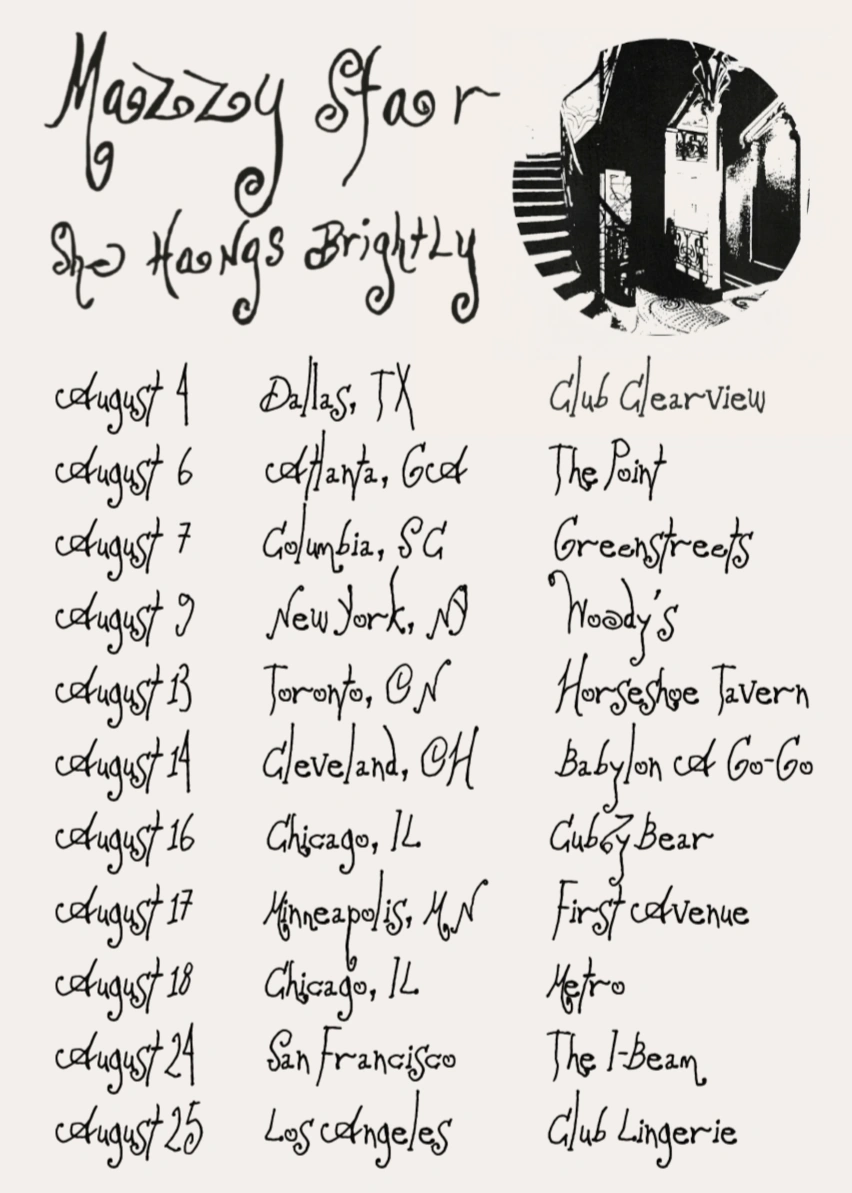 Mazzy Star
She Hangs Brightly
August 4 Dallas, TX Club Clearview
August 6 Atlanta, GA The Point
August 7 Columbia, SC Greenstreets
August 9 New York, NY Woody's
August 13 Toronto, ON Horseshoe Tavern
August 14 Cleveland, OH Babylon A Go-Go
August 16 Chicago, IL Cubby Bear
August 17 Minneapolis, MN First Avenue
August 18 Chicago, IL Metro
August 24 San Francisco The I-Beam
August 25 Los Angeles Club Lingerie